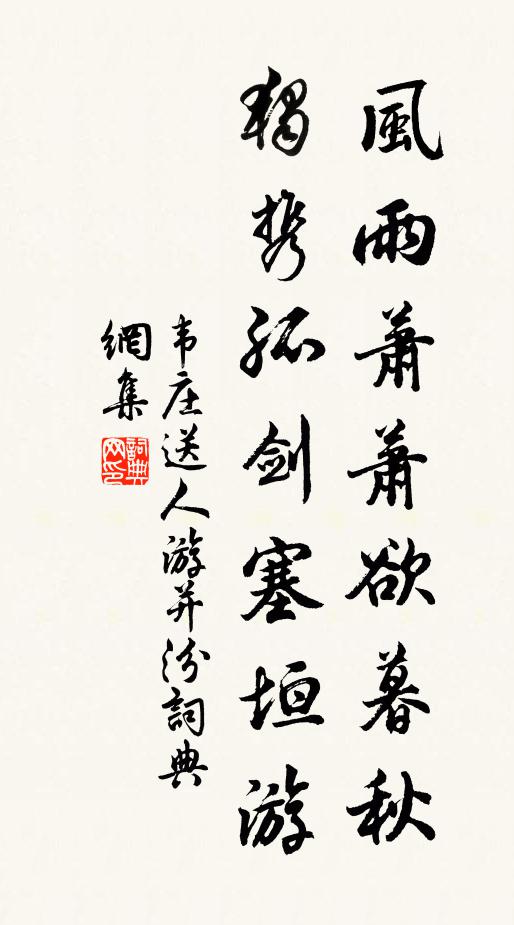 風雨蕭蕭欲暮秋
獨携孤劍塞垣游
韦庄送人游并汾詞典
網集
詞典網印